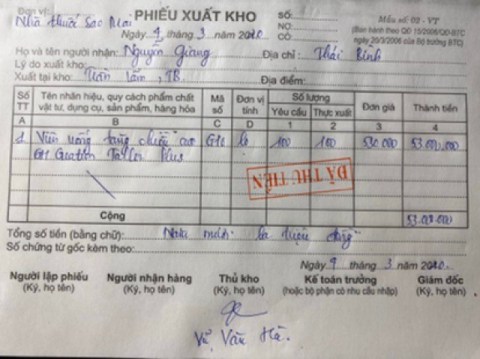 Đơn vị: Nhà thuốc Sao Mai
PHIẾU XUẤT KHO
Số:
NỢ:
CÓ:
Mẫu số 02 - VT
(Ban hành theo QĐ 15/2006/QĐ-BTC
ngày 20/3/2006 của Bộ trưởng BTC)
Ngày 9 tháng 3 năm 2020
Họ và tên người nhận: Nguyễn Giang Địa chỉ: Thái Bình
Lý do xuất kho:
Xuất tại kho: TB Địa điểm:
Số TT
Tên nhãn hiệu, quy cách phẩm chất vật tư, dụng cụ, sản phẩm, hàng hóa
Mã số
Đơn vị tính
Số lượng
Yêu cầu
Thực xuất
Đơn giá
Thành tiền
A B C D 1 2 3 4
1 Viên uống tăng chiều cao GH lọ 100 100 530.000 53.000.000
GH Plus
ĐÃ THU TIỀN
Cộng 53.000.000
Tổng số tiền (bằng chữ): Năm mươi ba triệu đồng
Số chứng từ gốc kèm theo:
Ngày 9 tháng 3 năm 2020
Người lập phiếu Người nhận hàng Thủ kho Kế toán trưởng Giám đốc
(Ký, họ tên) (Ký, họ tên) (Ký, họ tên) (hoặc bộ phận có nhu cầu nhập) (Ký, họ tên)
Vũ Văn Hà